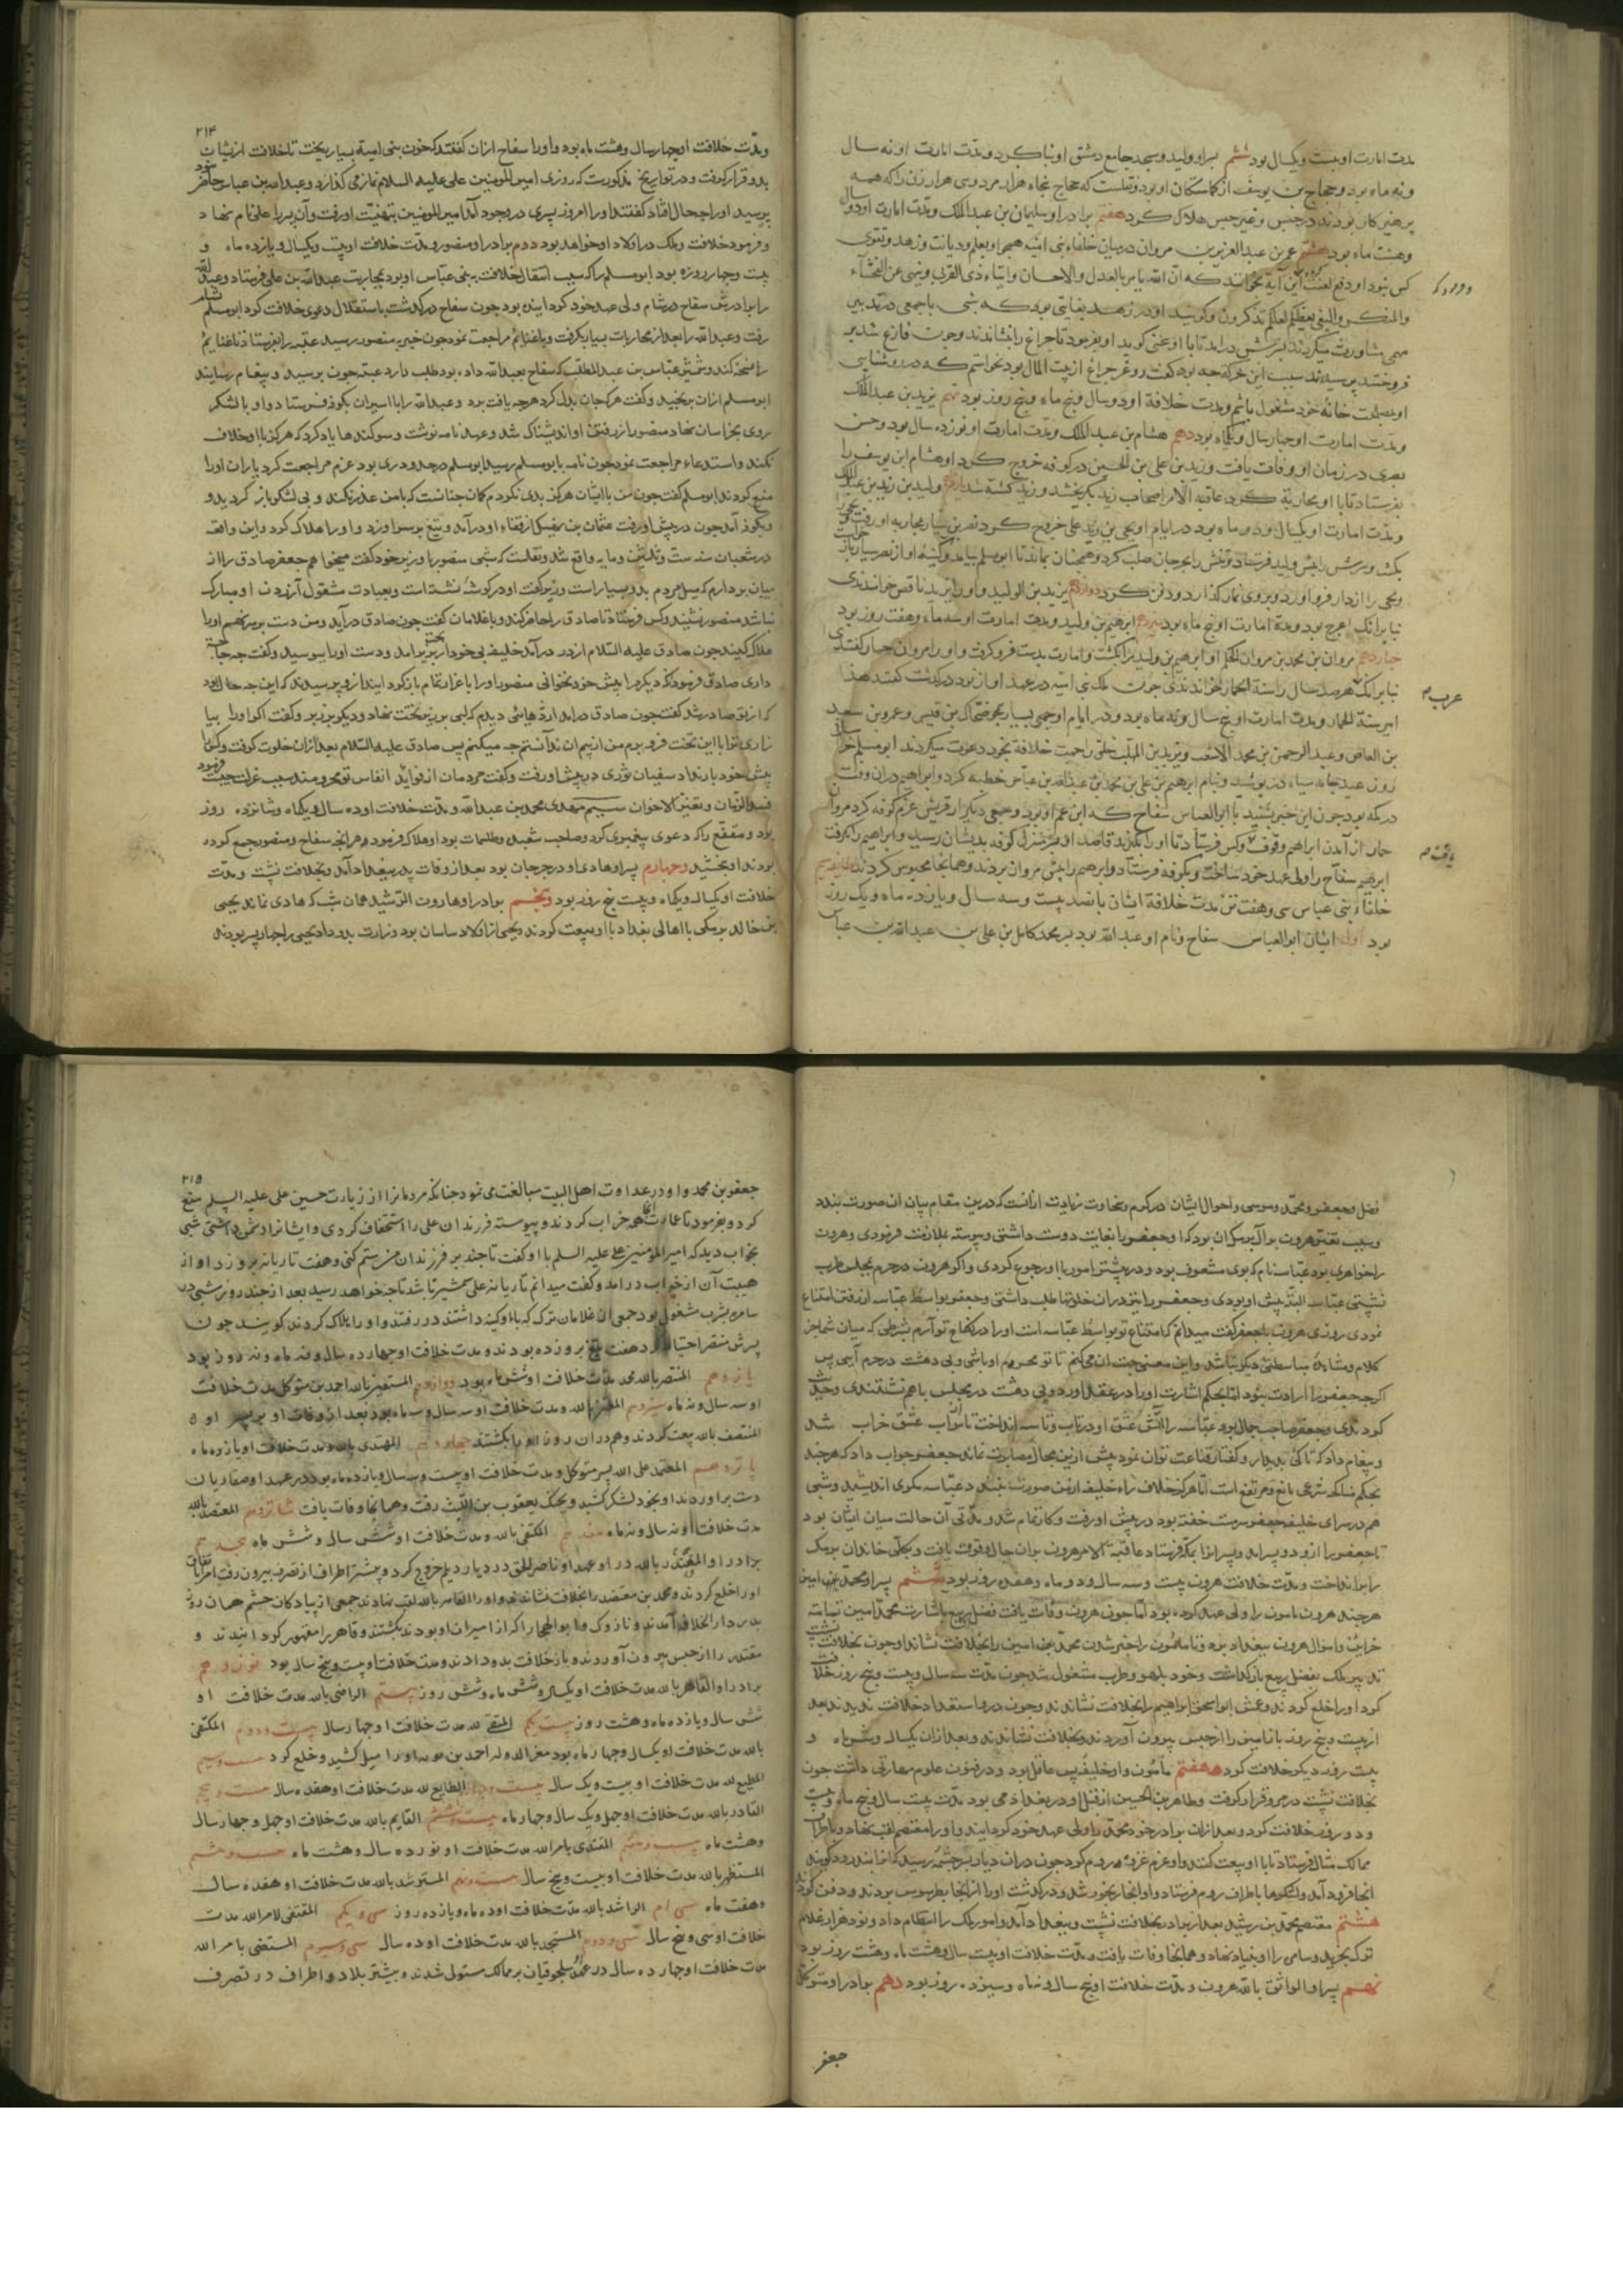 مدت امارت او بیست و یکسال بود ششم پسر او ولید و مسجد جامع دمشق او بنا کرد و مدت امارت او نه سال
و نه ماه بود و حجاج بن یوسف از کماشتکان او بود و نقلست که حجاج پنجاه هزار مرد و سی هزار زن را که همه
پرهیزکار بودند در حبس و غیر حبس هلاک کرد هفتم برادر او سلیمان بن عبد الملک و مدت امارت او دو سال
و هشت ماه بود هشتم عمر بن عبد العزیز بن مروان در میان خلفاء بنی امیه همچو او بعلم و دیانت و زهد و تقوی
کس نبود او دفع لعنت کرد و این آیه بخواند که ان الله یامر بالعدل والاحسان وایتاء ذی القربی وینهی عن الفحشاء
والمنکر والبغی یعظکم لعلکم تذکرون و کویند او در زهد بغایتی بود که شبی با جمعی در تدبیر
مهمی مشاورت میکردند
او بمصلحت خانه خود مشغول باشم و مدت خلافة او دو سال و پنج ماه و پنج روز بود نهم یزید بن عبد الملک
و مدت امارت او چهار سال و یکماه بود دهم هشام بن عبد الملک و مدت امارت او نوزده سال بود و حسن
بصری در زمان او وفات یافت و زید بن علی بن الحسین در کوفه خروج کرد او هشام ابن یوسف را
بفرستاد تا با او محاربه کرد عاقبة الامر اصحاب زید بکریختند و زید کشته شد یازدهم ولید بن یزید بن عبد الملک
و مدت امارت او یکسال و دو ماه بود در ایام او یحیی بن زید علی خروج کرد نصر بن سیار بمحاربه او رفت
بکشت و سرش را پیش ولید فرستاد و تنش را بجرجان صلب کرد و همچنان بماند تا ابو مسلم بیامد
و یحیی را از دار فرو آورد و بر وی نماز کذارد و دفن کرد دوازدهم یزید بن الولید و او را یزید ناقص خواندندی
بنا بر آنک اعرج بود و مدة امارت او پنج ماه بود سیزدهم ابرهیم بن ولید و مدت امارت او سه ماه و هفت روز بود
چهاردهم مروان بن محمد بن مروان الحکم او ابرهیم بن ولید را بکشت و امارت بدست فرو کرفت و او را مروان حمار کفتندی
بنا بر آنک هر صد سال را سنة الحمار خوانندی چون ملک بنی امیه در عهد او از بود درکذشت کفتند هذا
امیر سنة الحمار و مدت امارت او پنج سال و نه ماه بود و در ایام او جمعی بسیار چو ضحاک بن قیس و عمرو بن سعید
بن العاص و عبد الرحمن بن محمد الاشعث و یزید بن المهلب خلق را جهت خلافة بخود دعوت میکردند ابو مسلم خراسانی
روز عید جامه سیاه در پوشید و بنام ابرهیم بن علی بن محمد بن عبد الله بن عباس خطبه کرد و ابراهیم در آن وقت
در مکه بود چون این خبر بشنید با ابو العباس سفاح که ابن عم او بود و جمعی دیکر از قریش عزم کوفه کرد مروان
حمار از آمدن ابراهیم وقوف کس فرستاد تا او را بکیرند قاصد او در منزل کوفه بدیشان رسید و ابراهیم را بکرفت
ابرهیم سفاح را ولی عهد خود ساخت و بکوفه فرستاد و ابرهیم را پیش مروان بردند و همانجا محبوس کردند
خلفاء بنی عباس سی و هفت تن مدت خلافة ایشان پانصد و بیست و سه سال و یازده ماه و یک روز
بود اول ایشان ابو العباس سفاح و نام او عبد الله بود بسر محمد کامل بن علی بن عبد الله بن عباس
عرب
۲۱۴
و مدت خلافت او چهار سال و هشت ماه بود و او را سفاح از ان کفتند که خون بنی امیة بسیار بریخت تا خلافت ازیشان
بدو قرار کرفت و در تواریخ مذکورست که روزی امیر المومنین علی علیه السلام نماز می کذارد و عبد الله بن عباس حاضر نبود
پرسید او را چه حال افتاد کفتند او را امروز پسری در وجود آمد امیر المومنین بتهنیت او رفت و آن پسر را علی نام نهاد
و فرمود خلافت و ملک در اولاد او خواهد بود دوم برادر او منصور و مدت خلافت او بیست و یکسال و یازده ماه و
بیست و چهار روزه بود ابو مسلم را که سبب انتقال خلافت ببنی عباس او بود بمحاربت عبد الله بن علی فرستاد و عبد الله
را برادرش سفاح در شام ولی عهد خود کردانیده بود چون سفاح درکذشت باستقلال دعوی خلافت کرد ابو مسلم بشام
رفت و عبد الله را بعد از محاربات بسیار بکرفت و با غنایم مراجعت نمود چون خبر بمنصور رسید عقبه را بفرستاد تا غنایم
را نسخه کند و شمشیر عباس بن عبد المطلب که سفاح بعبد الله داده بود طلب دارد عقبه چون برسید و پیغام رسانید
ابو مسلم از ان برنجید و کفت هر که جان بذل کرد هرچه یافت برد و عبد الله را با اسیران بکوفه فرستاد و او با لشکر
روی بخراسان نهاد منصور از رفتن او اندیشناک شد و عهد نامه نوشت و سوکندها یاد کرد که هرکز با او خلاف
نکند و استدعاء مراجعت نمود چون نامه بابو مسلم رسید ابو مسلم در حدود ری بود عزم مراجعت کرد یاران او را
منع کردند ابو مسلم کفت چون من با ایشان هرکز بدی نکردم کمان چنانست که با من عذر نکند و بی لشکر باز کردید و
در شعبان سنه ست و ثلثین و مایه واقع شد و نقلست که شبی منصور با وزیر خود کفت میخواهم جعفر صادق را از
میان بردارم که میل مردم بدو بسیار است وزیر کفت او در کوشه نشسته است و بعبادت مشغول آزردن او مبارک
نباشد منصور نشنید و کس فرستاد تا صادق را حاضر کند و با غلامان کفت چون صادق درآید و من دست بر سر نهم او را
هلاک کنید چون صادق علیه السلام از در درآمد خلیفه بی خود از تخت بزیر آمد و دست او را ببوسید و کفت چه حاجت
داری صادق فرمود که دیکر مرا پیش خود نخوانی منصور او را باعزاز تمام باز کردانید ازو پرسیدند که این چه حال بود
که از تو صادر شد کفت چون صادق درآمد اژدهایی دیدم که لبی بر زیر تخت نهاد و دیکر بر زبر و کفت اکر او را بیا
زاری ترا با این تخت فرو برم من از بیم آن ندانستم چه میکنم پس صادق علیه السلام بعد از ان خلوت کرفت و کس را
پیش خود بار نداد سفیان ثوری در پیش او رفت و کفت مردمان از فواید انفاس تو محرومند سبب عزلت چیست فرمود
فسد الزمان و تغیر الاخوان سیم مهدی محمد بن عبد الله و مدت خلافت او ده سال و یکماه و شانزده روز
بود و مقنع را که دعوی پیغمبری کرد و صاحب شعبده و طلسمات بود او هلاک فرمود و هر انچه سفاح و منصور جمع کرده
بودند او بخشید و چهارم پسر او هادی او در جرجان بود بعد از وفات پدر ببغداد آمد و بخلافت نشست و مدت
خلافت او یکسال و یکماه و بیست پنج روز بود و پنجم برادر او هارون الرشید همان شب که هادی نماند یحیی
بن خالد برمکی با اهالی بغداد با او بیعت کردند و یحیی از اولاد ساسان بود وزارت بدو داد یحیی را چهار پسر بودند
فضل و جعفر و محمد و موسی و احوال ایشان در کرم و سخاوت زیادت از آنست که درین مقام بیان ان صورت بندد
و سبب تغیر هرون بر آل برمک ان بود که او جعفر را بغایت دوست داشتی و پیوسته ملازمت فرمودی و هرون
را خواهری بود عباسه نام که بوی مشعوف بود و در بیشتر امور با او رجوع کردی و اکر هرون در حرم بمجلس طرب
نشستی عباسه البته پیش او بودی و جعفر را نیز در ان خلوتها طلب داشتی و جعفر بواسطه عباسه از رفتن امتناع
نمودی روزی هرون با جعفر کفت میدانم که امتناع تو بواسطه عباسه است او را در نکاح تو آرم بشرطی که میان شما جز
کلام و مشاهده مباسطتی دیکر نباشد و این معنی جهت ان می کنم تا تو محرم او باشی و بی دهشت در حرم آیی پس
اکرچه جعفر را ارادت نبود اما بحکم اشارت او را در عقد آورد و بی دهشت در مجلس با هم نشستندی و حدیث
کردندی و جعفر صاحب جمال بود عباسه را آتش عشق او در تاب و تاسه انداخت تا از آب عشق خراب شد
و پیغام داد که تا کی بدیدار و کفتار قناعت توان نمود بیش ازین مجال مصابرت نماند جعفر جواب داد که هرچند
هم در سرای خلیفه جعفر مست خفته بود در پیش او رفت و کار تمام شد و مدتی آن حالت میان ایشان بود
تا جعفر را ازو دو پسر آمد و پسران را بمکه فرستاد عاقبة الامر هرون بران حال وقوف یافت و بکلی خاندان برمک
را برانداخت و مدت خلافت هرون بیست و سه سال و دو ماه و هفده روز بود ششم پسر او محمد امین
هرچند هرون مامون را ولی عهد کرده بود اما چون هرون وفات یافت فضل ربیع باشارت محمد امین تمامت
خزاین و اموال هرون ببغداد برد و تا مامون را خبر شدن محمد امین را بخلافت نشاند و چون بخلافت نشست
تدبیر ملک بفضل ربیع باز کذاشت و خود بلهو و طرب مشغول شد چون مدت سه سال و بیست و پنج روز خلافت
کرد او را خلع کردند و عمش ابو اسحق ابراهیم را بخلافت نشاندند و چون درو استعداد خلافت ندیدند بعد
از بیست و پنج روز باز امین را از حبس بیرون آوردند و بخلافت نشاندند و بعد از ان یکسال و شش ماه و
بیست روز دیکر خلافت کرد هفتم مامون و او خلیفه بس عاقل بود و در فنون علوم مهارتی داشت چون
بخلافت نشست در مرو قرار کرفت و طاهر بن الحسین از قبل او در بغداد می بود مدت بیست سال و پنج ماه و بیست
و دو روز خلافت کرد و بعد از ان برادر خود محمد را ولی عهد خود کردانید و او را معتصم لقب نهاد و باطراف
ممالک مثال فرستاد تا با او بیعت کنند و او عزم غزوه روم کرد چون دران دیار بسرچشمه رسید
انجا فرود آمد و لشکرها باطراف روم فرستاد و او انجا رنجور شد و درکذشت او را از انجا بطرسوس بردند و دفن کردند
هشتم معتصم محمد بن رشید بعد از برادر بخلافت نشست و ببغداد آمد و امور ملک را انتظام داد و نود هزار غلام
ترک بخرید و سامره را او بنیاد نهاد و همانجا وفات یافت و مدت خلافت او بیست سال و هشت ماه و هشت روز بود
نهم پسر او الواثق بالله هرون و مدت خلافت او پنج سال و نه ماه و سیزده روز بود دهم برادر او متوکل
جعفر
۲۱۵
جعفر بن محمد و او در عداوت اهل البیت مبالغت می نمود چنانکه مردمان را از زیارت حسین علی علیه السلم منع
کرد و بفرمود تا عمارت انجا خراب کردند و پیوسته فرزندان علی را استخفاف کردی و ایشان را دشمن داشتی شبی
بخواب دید که امیر المومنین علی علیه السلم با او کفت تا چند بر فرزندان من ستم کنی و هفت تازیانه برو زد او از
هیبت آن از خواب درآمد و کفت میدانم تازیانه علی شمشیر باشد تا چه خواهد رسید بعد از چند روز شبی در
سامره بشرب مشغول بود جمعی از غلامان ترک که با او کینه داشتند در رفتند و او را هلاک کردند کویند چون
پسرش منتصر احتیاط کرد هفت تیغ برو زده بودند و مدت خلافت او چهارده سال و نه ماه و نه روز بود
یازدهم المنتصر بالله محمد مدت خلافت او شش ماه بود دوازدهم المستعین بالله احمد بن متوکل مدت خلافت
او سه سال و نه ماه سیزدهم المعتز بالله و مدت خلافت او سه سال و سه ماه بود بعد از وفات او بر پسر او
المنتصف بالله بیعت کردند و هم دران روز او را بکشتند چهاردهم المهتدی بالله و مدت خلافت او یازده ماه
پانزدهم المعتمد علی الله پسر متوکل و مدت خلافت او بیست و سه سال و یازده ماه بود در عهد او صفاریان
دست برآوردند او بخود لشکر کشید و بجنک یعقوب بن اللیث رفت و همانجا وفات یافت شانزدهم المعتضد بالله
مدت خلافت او نه سال و نه ماه هفدهم المکتفی بالله و مدت خلافت او شش سال و شش ماه هجدهم
برادر او المقتدر بالله در عهد او ناصر الحق در دیار دیلم خروج کرد و بیشتر اطراف از تصرف بیرون رفت
او را خلع کردند و محمد بن معتضد را بخلافت نشاندند و او را القاهر بالله لقب نهادند جمعی از پیادکان حشم همان روز
بدر دار الخلافه آمدند و نازوک و ابو الهیجا را که از امیران او بودند بکشتند و قاهر را مقهور کردانیدند و
مقتدر را از حبس بیرون آوردند و باز خلافت بدو دادند و مدت خلافت او بیست و پنج سال بود نوزدهم
برادر او القاهر بالله مدت خلافت او یکسال و شش ماه و شش روز بیستم الراضی بالله مدت خلافت او
شش سال و یازده ماه و هشت روز بیست یکم المتقی لله مدت خلافت او چهار سال بیست و دوم المکتفی
بالله مدت خلافت او یکسال و چهار ماه بود معز الدوله احمد بن بویه او را میل کشید و خلع کرد بیست و سیم
المطیع لله مدت خلافت او بیست و یک سال بیست و چهارم الطایع لله مدت خلافت او هفده سال بیست و پنجم
القادر بالله مدت خلافت او چهل و یک سال و چهار ماه بیست و ششم القایم بالله مدت خلافت او چهل و چهار سال
و هشت ماه بیست و هفتم المقتدی بامر الله مدت خلافت او نوزده سال و هشت ماه بیست و هشتم
المستظهر بالله مدت خلافت او بیست و پنج سال بیست و نهم المسترشد بالله مدت خلافت او هفده سال
و هفت ماه سی ام الراشد بالله مدت خلافت او ده ماه و یازده روز سی و یکم المقتفی لامر الله مدت
خلافت او سی و پنج سال سی و دوم المستنجد بالله مدت خلافت او ده سال سی و سیوم المستضی بامر الله
مدت خلافت او چهارده سال در عهد سلجوقیان بر ممالک مستولی شدند و بیشتر بلاد و اطراف در تصرف